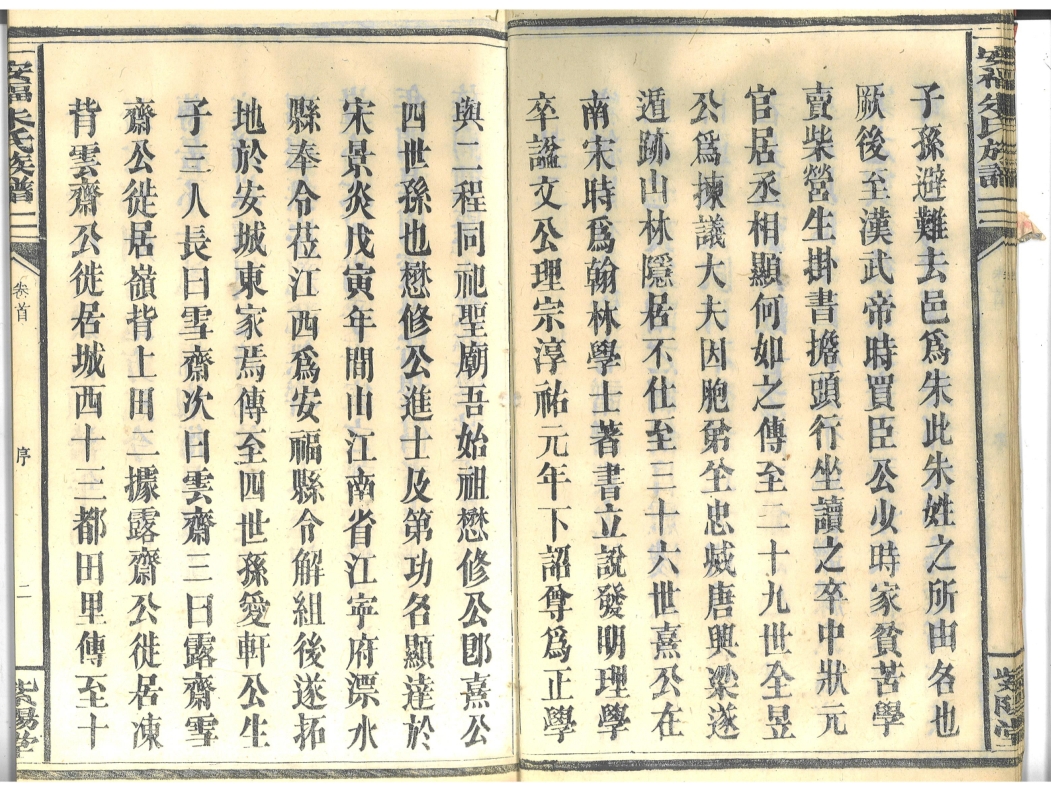 安福朱氏族譜
紫陽堂
子孫避難去邑爲朱此朱姓之所由名也
厥後至漢武帝時買臣公少時家貧苦學
賣柴營生掛書擔頭行坐讀之卒中狀元
官居丞相顯何如之傳至二十九世全昱
公爲揀議大夫因胞弟全忠烕唐興梁遂
遁跡山林隱居不仕至三十六世熹公在
南宋時爲翰林學士著書立說發明理學
卒謚文公理宗淳祐元年下詔尊爲正學
與二程同祀聖廟吾始祖懋修公卽熹公
四世孫也懋修公進士及第功名顯達於
宋景炎戊寅年間山江南省江寕府漂水
縣奉令莅江西爲安福縣令解組後遂拓
地於安城東家焉傳至四世孫愛軒公生
子三人長曰雪齋次曰雲齋三曰露齋雪
齋公徙居嶺背上田二據露齋公徙居凍
背雲齋公徙居城西十三都田里傳至十
安福朱氏族譜
卷首
序
二
紫陽堂